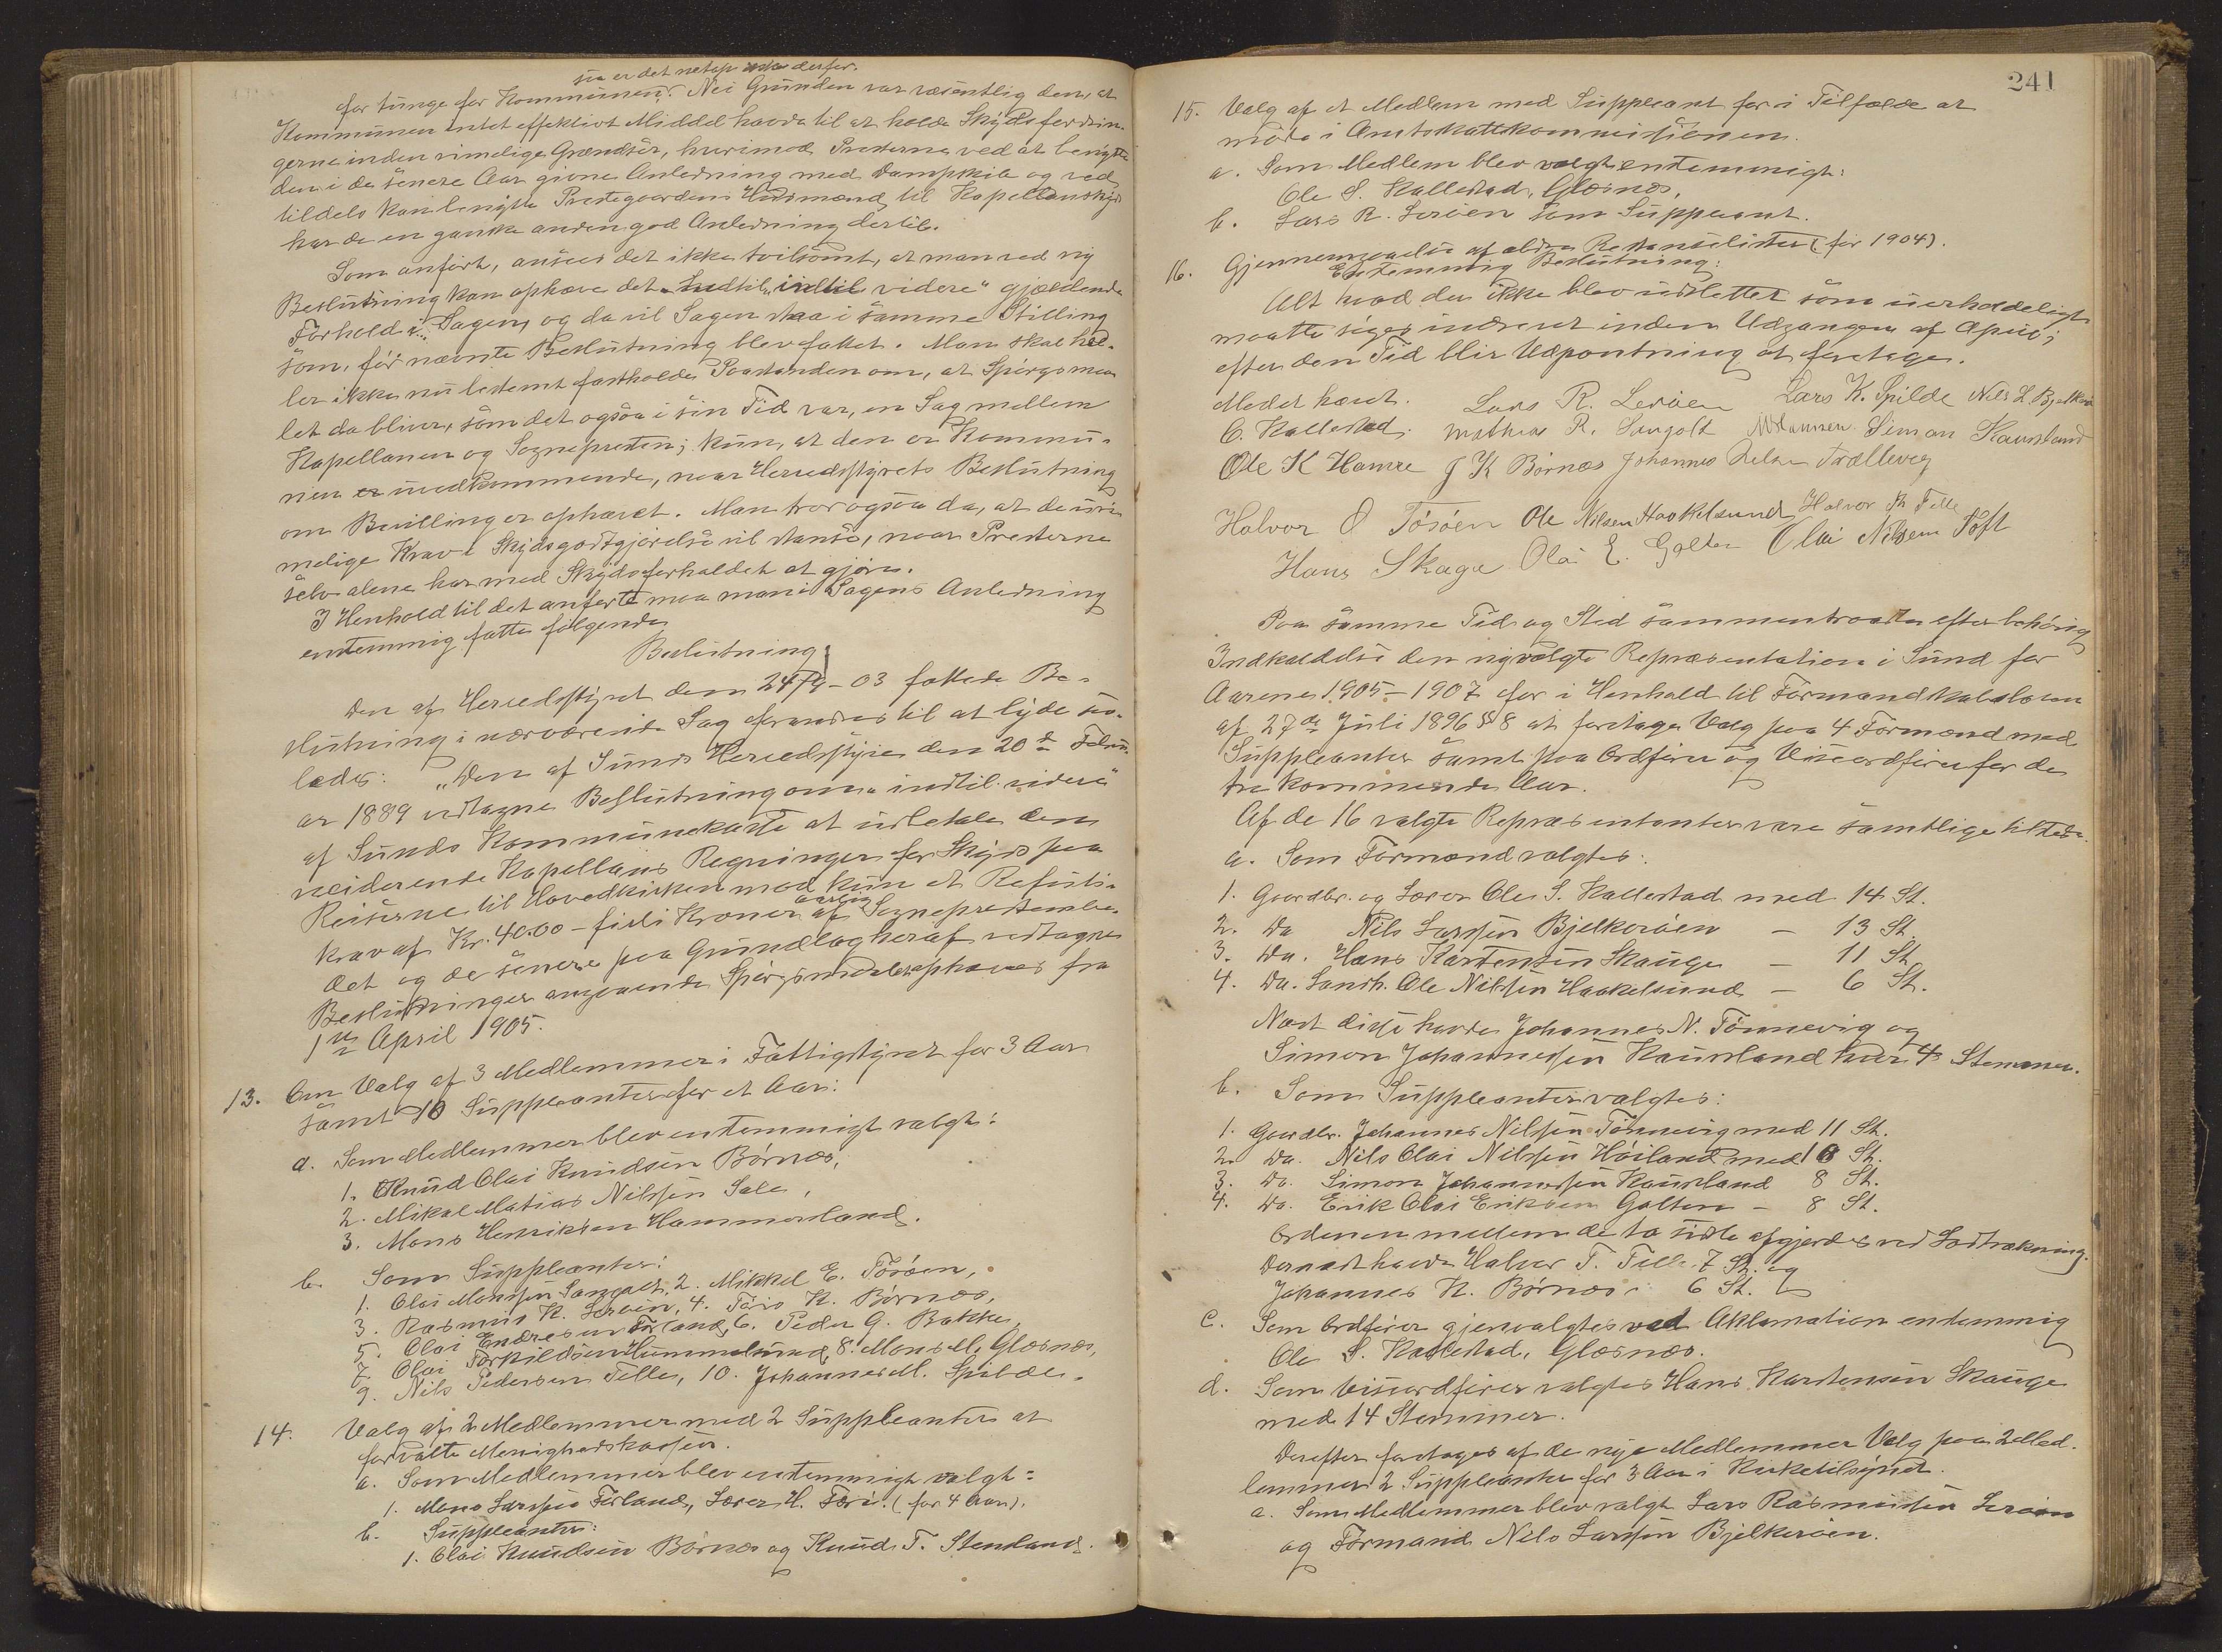 saa er det netop ikke derfor.
for tunge for Kommunen. Nei Grunden var væsentlig den, at
Kommunen intet effektivt Middel havde til at holde Skydsfordrin-
gerne inden rimelige Grændser, hvorimod Presterne ved at benytte
den i de senere Aar givne Anledning med Dampskib og ved
tildels kan benytte Prestegaardens Husmænd til Kapellanskyds
har de en ganske anden god Anledning dertil.
Som anført, ansees det ikke tvilsomt, at man ved ny
Beslutning kan ophæve det "indtil videre" gjældende
Forhold i Sagen, og da vil Sagen staa i samme Stilling
som, før nævnte Beslutning blev fattet. Man skal hel-
ler ikke nu bestemt fastholde Paastanden om, at Spørgsmaa-
let da bliver, som det ogsaa i sin Tid var, en Sag mellem
Kapellanen og Sognepresten; kun, at den er Kommu-
nen uvedkommende, naar Herredsstyrets Beslutning
om Bevillinger ophævet. Man tror ogsaa da, at de uri-
melige Krav i Skydsgodtgjørelse vil standse, naar Presterne
selv alene har med Skydsforholdet at gjøre.
I Henhold til det anførte maa man i Sagens Anledning
enstemmig fatte følgende
Beslutning:
Den af Herredsstyret den 24/9-03 fattede Be-
slutning i nærværende Sag forandres til at lyde saa-
ledes: "Den af Sunds Herredsstyre den 20de Febru-
ar 1889 vedtagne Beslutning om "indtil videre"
af Sunds Kommunekasse at udbetale den
residerende Kapellans Regninger for Skyds paa
Reiserne til Hovedkirken mod kun et Refusi-
aarlig
krav af Kr. 40.00 - firti Kroner af Sogneprestembe-
det og de senere paa Grundlag heraf vedtagne
Beslutninger angaaende Spørgsmaalet ophæves fra
1ste April 1905.
13. Om Valg af 3 Medlemmer i Fattigstyret for 3 Aar
samt 10 Suppleanter for et Aar:
a. Som Medlemmer blev enstemmigt valgt:
1. Knud Olai Knudsen Børnæs,
2. Mikal Matias Nilssen Sale,
3. Mons Henriksen Hammersland.
b. Som Suppleanter:
1. Olai Monssen Sangolt, 2. Mikkel E. Tösöen,
3. Rasmus K. Leröen, 4. Töris K. Börnæs,
5. Olai Endresen Forland, 6. Peder G. Bakke,
7. Olai Torkildsen Hummelsund, 8. Mons M. Glæsnæs,
9. Nils Pedersen Telle, 10. Johannes M. Spilde.
14. Valg af 2 Medlemmer med 2 Suppleanter at
forvalte Menighedskassen.
a. Som Medlemmer blev enstemmigt valgt:
1. Mons Larssen Forland, Lærer H. (for 4 Aar).
b. Suppleanter:
1. Olai Knudsen Börnæs og Knud T. Stensland.
241
15. Valg af et Medlem med Suppleant for i Tilfælde at
møde i Amtsskattekommissionen.
a. Som Medlem blev valgt enstemmigt:
Ole S. Kallestad, Glæsnæs.
b. Lars R. Leröen som Suppleant.
16. Gjennemgaaelse af ældre Restanselister (for 1904).
Enstemmig Beslutning:
Alt hvad der ikke blev udslettet som uerholdeligt
maatte söges inddrevet inden Udgangen af April;
efter den Tid blir Udpantning at foretage.
Mödet hævet. Lars R. Leröen Lars K. Spilde Nils L. Bjelkerö
O. Kallestad. Mathias R. Sangolt M. Hansen. Simon Kausland
Ole K Hamre J K Börnæs Johannes Nelsen Trællevig
Halvor O Tösöen Ole Nilsen Haakelsund Halvor Th Telle
Hans Skage Olai E. Golten Olai Nilsen Toft
Paa samme Tid og Sted sammentraadte efter behörig
Indkaldelse den nyvalgte Repræsentation i Sund for
Aarene 1905-1907 for i Henhold til Formandskabsloven
af 27de Juli 1896 § 8 at foretage Valg paa 4 Formænd med
Suppleanter samt paa Ordförer og Viseordförer for de
tre kommende Aar.
Af de 16 valgte Repræsentanter vare samtlige tilstede.
a. Som Formænd valgtes:
1. Gaardbr. og Lærer Ole S. Kallestad med 14 St.
2. Do Nils Larssen Bjelkeröen - 13 St.
3. Do. Hans Karstensen Skauge - 11 St
4. Do. Landh. Ole Nilssen Haakelsund - 6 St.
Næst disse havde Johannes N. Tönnevig og
Simon Johannessen Kausland hver 4 Stemmer.
b. Som Suppleanter valgtes:
1. Gaardbr. Johannes Nilssen Tönnevig med 11 St.
2. Do. Nils Olai Nilssen Höiland med 10 St.
3. Do. Simon Johannessen Kausland 8 St.
4. Do. Erik Olai Eriksen Golten - 8 St.
Ordenen mellem de to sidste afgjordes ved Lodtrækning.
Dernæst havde Halvor T. Telle 7 St. og
Johannes K. Börnæs 6 St.
c. Som Ordförer gjenvalgtes ved Aklamation enstemmig
Ole S. Kallestad, Glæsnæs.
d. Som Viseordförer valgtes Hans Karstensen Skauge
med 14 Stemmer.
Derefter foretoges af de nye Medlemmer Valg paa 2 Med-
lemmer 2 Suppleanter for 3 Aar i Kirketilsynet.
a. Som Medlemmer blev valgt Lars Rasmussen Leröen
og Formand Nils Larssen Bjelkeröen.